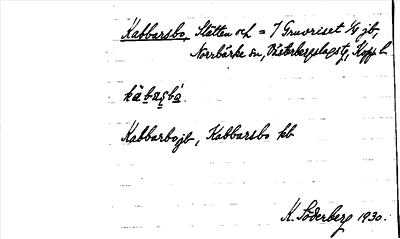 Kabbarsbo, Slätten och = 7 Gruvriset 1/4 jb,
Norrbärke sn, Västerbergslags tg, Kopp l.
kàbasbò
Kabbarbo jb, Kabbarsbo kb
K. Söderberg 1930.